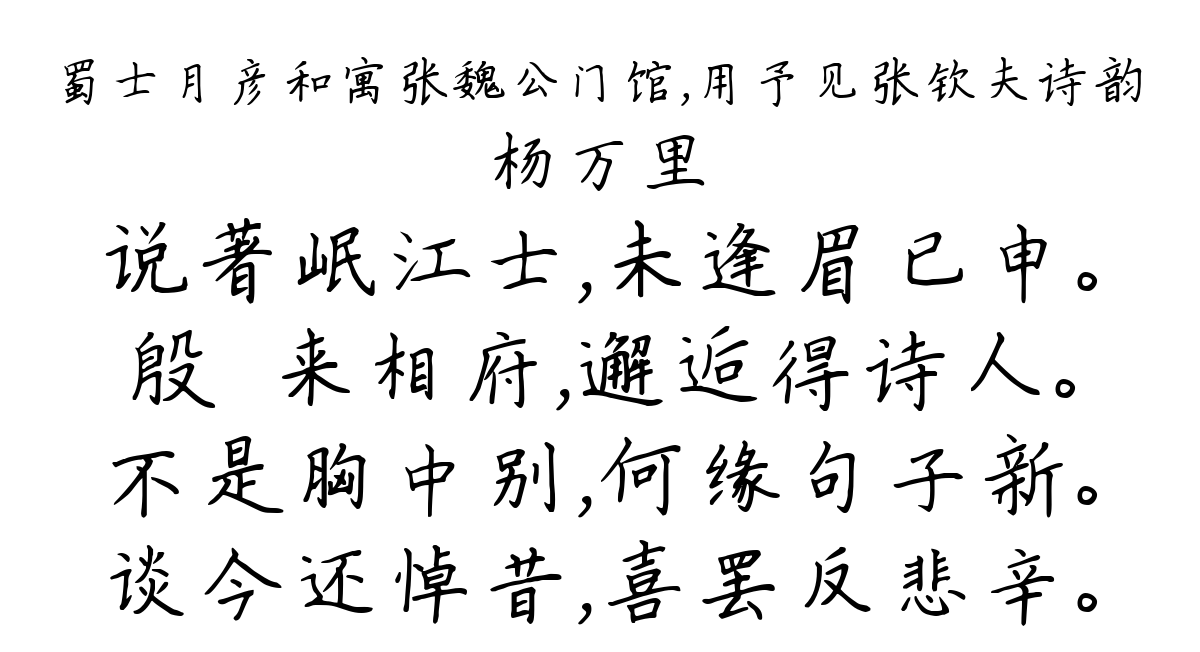 蜀士月彦和寓张魏公门馆,用予见张钦夫诗韵
杨万里
说著岷江士,未逢眉已申。
殷 来相府,邂逅得诗人。
不是胸中别,何缘句子新。
谈今还悼昔,喜罢反悲辛。